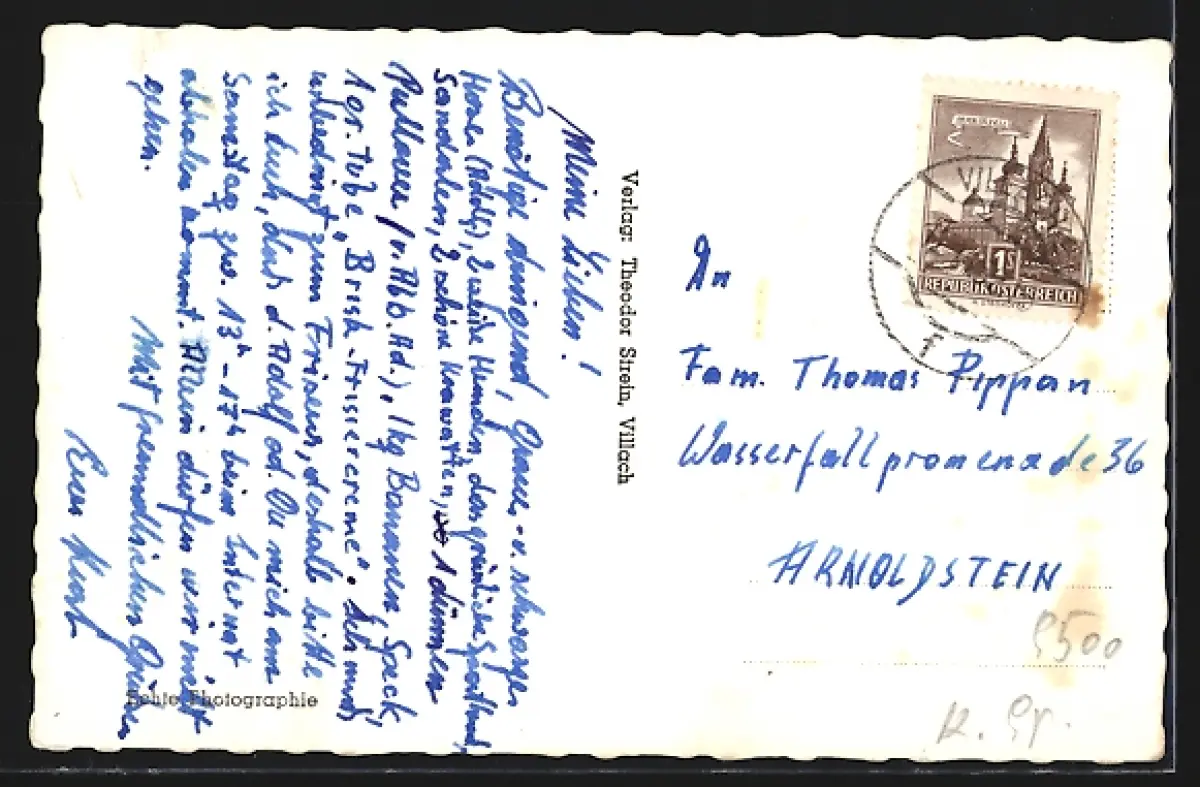 Meine Lieben!
Benötige dringend, graue- u. schwarze
Hosen (Adolf), 2 weiße Hemden, das grünliche Sporthemd,
Sandalen, 2 schöne Krawatten, 1 dünnen
Pullover (v. Abb. Ad.), 1 kg Bananen, Speck,
1 gr. Tube „Brisk-Frisiercreme". Ich muß
unbedingt zum Friseur, deshalb bitte
ich Euch, daß d. Adolf od. Du mich am
Samstag zw. 13h - 17h beim Internat
abholen kommt. Allein dürfen wir nicht
gehen.
Mit freundlichen Grüßen
Euer
Echte Photographie
Verlag: Theodor Strein, Villach
VIL
1S
REPUBLIK ÖSTERREICH
f
An
Fam. Thomas Pippan
Wasserfallpromenade 36
ARNOLDSTEIN
9500
K. Gr.